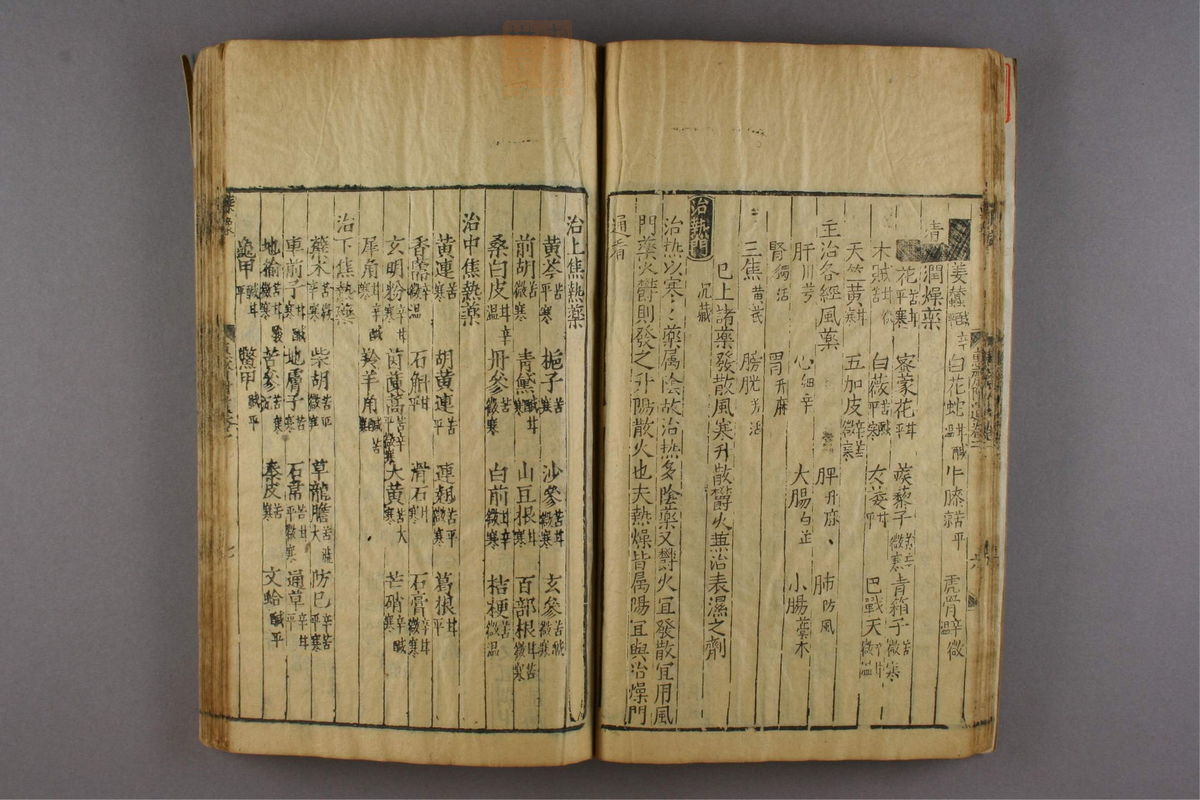 清潤燥藥
白花蛇 牛膝苦平 虎骨辛微溫
花苦平寒 密蒙花甘 蒺藜子苦辛微寒 青箱子苦微寒
木賊甘苦 白薇苦鹹平寒 女萎甘平 巴戟天辛甘微溫
天竺黃甘寒 五加皮辛苦微寒
主治各經風藥
肝川芎 心細辛 脾升麻 肺防風
腎獨活 胃升麻 大腸白芷 小腸藁本
三焦黃芪 膀胱羌活
已上諸藥發散風寒升散欝火兼治表濕之劑
治熱門
治熱以寒寒藥属陰故治热多陰藥又欝火宜發散宜用風
門藥火欝則發之升陽散火也夫熱燥皆属陽宜與治燥門
通看
治上焦熱藥
黃芩苦平寒 梔子苦寒 沙參苦甘微寒 玄參苦鹹微寒
前胡苦微寒 青黛鹹甘寒 山豆根甘寒 百部根甘苦微寒
桑白皮甘辛溫 丹參苦微寒 白前甘辛微寒 桔梗苦辛微溫
治中焦熱藥
黃連苦寒 胡黃連苦平 連翹苦平 葛根甘平
香薷辛微溫 石斛甘平 滑石甘寒 石膏辛甘微寒
玄明粉辛甘鹹寒 茵蔯蒿苦辛平微寒 大黃苦大寒 芒硝辛鹹寒
犀角苦鹹微寒 羚羊角鹹苦寒
治下焦熱藥
柴胡苦平微寒 草龍膽苦澁大寒 防已辛苦平寒
車前子甘鹹寒 地膚子苦寒 石韋苦甘平微寒 通草辛甘平
地榆苦甘酸微寒 苦參苦寒 秦皮苦寒 文蛤鹹平
龜甲鹹甘平 鱉甲鹹平